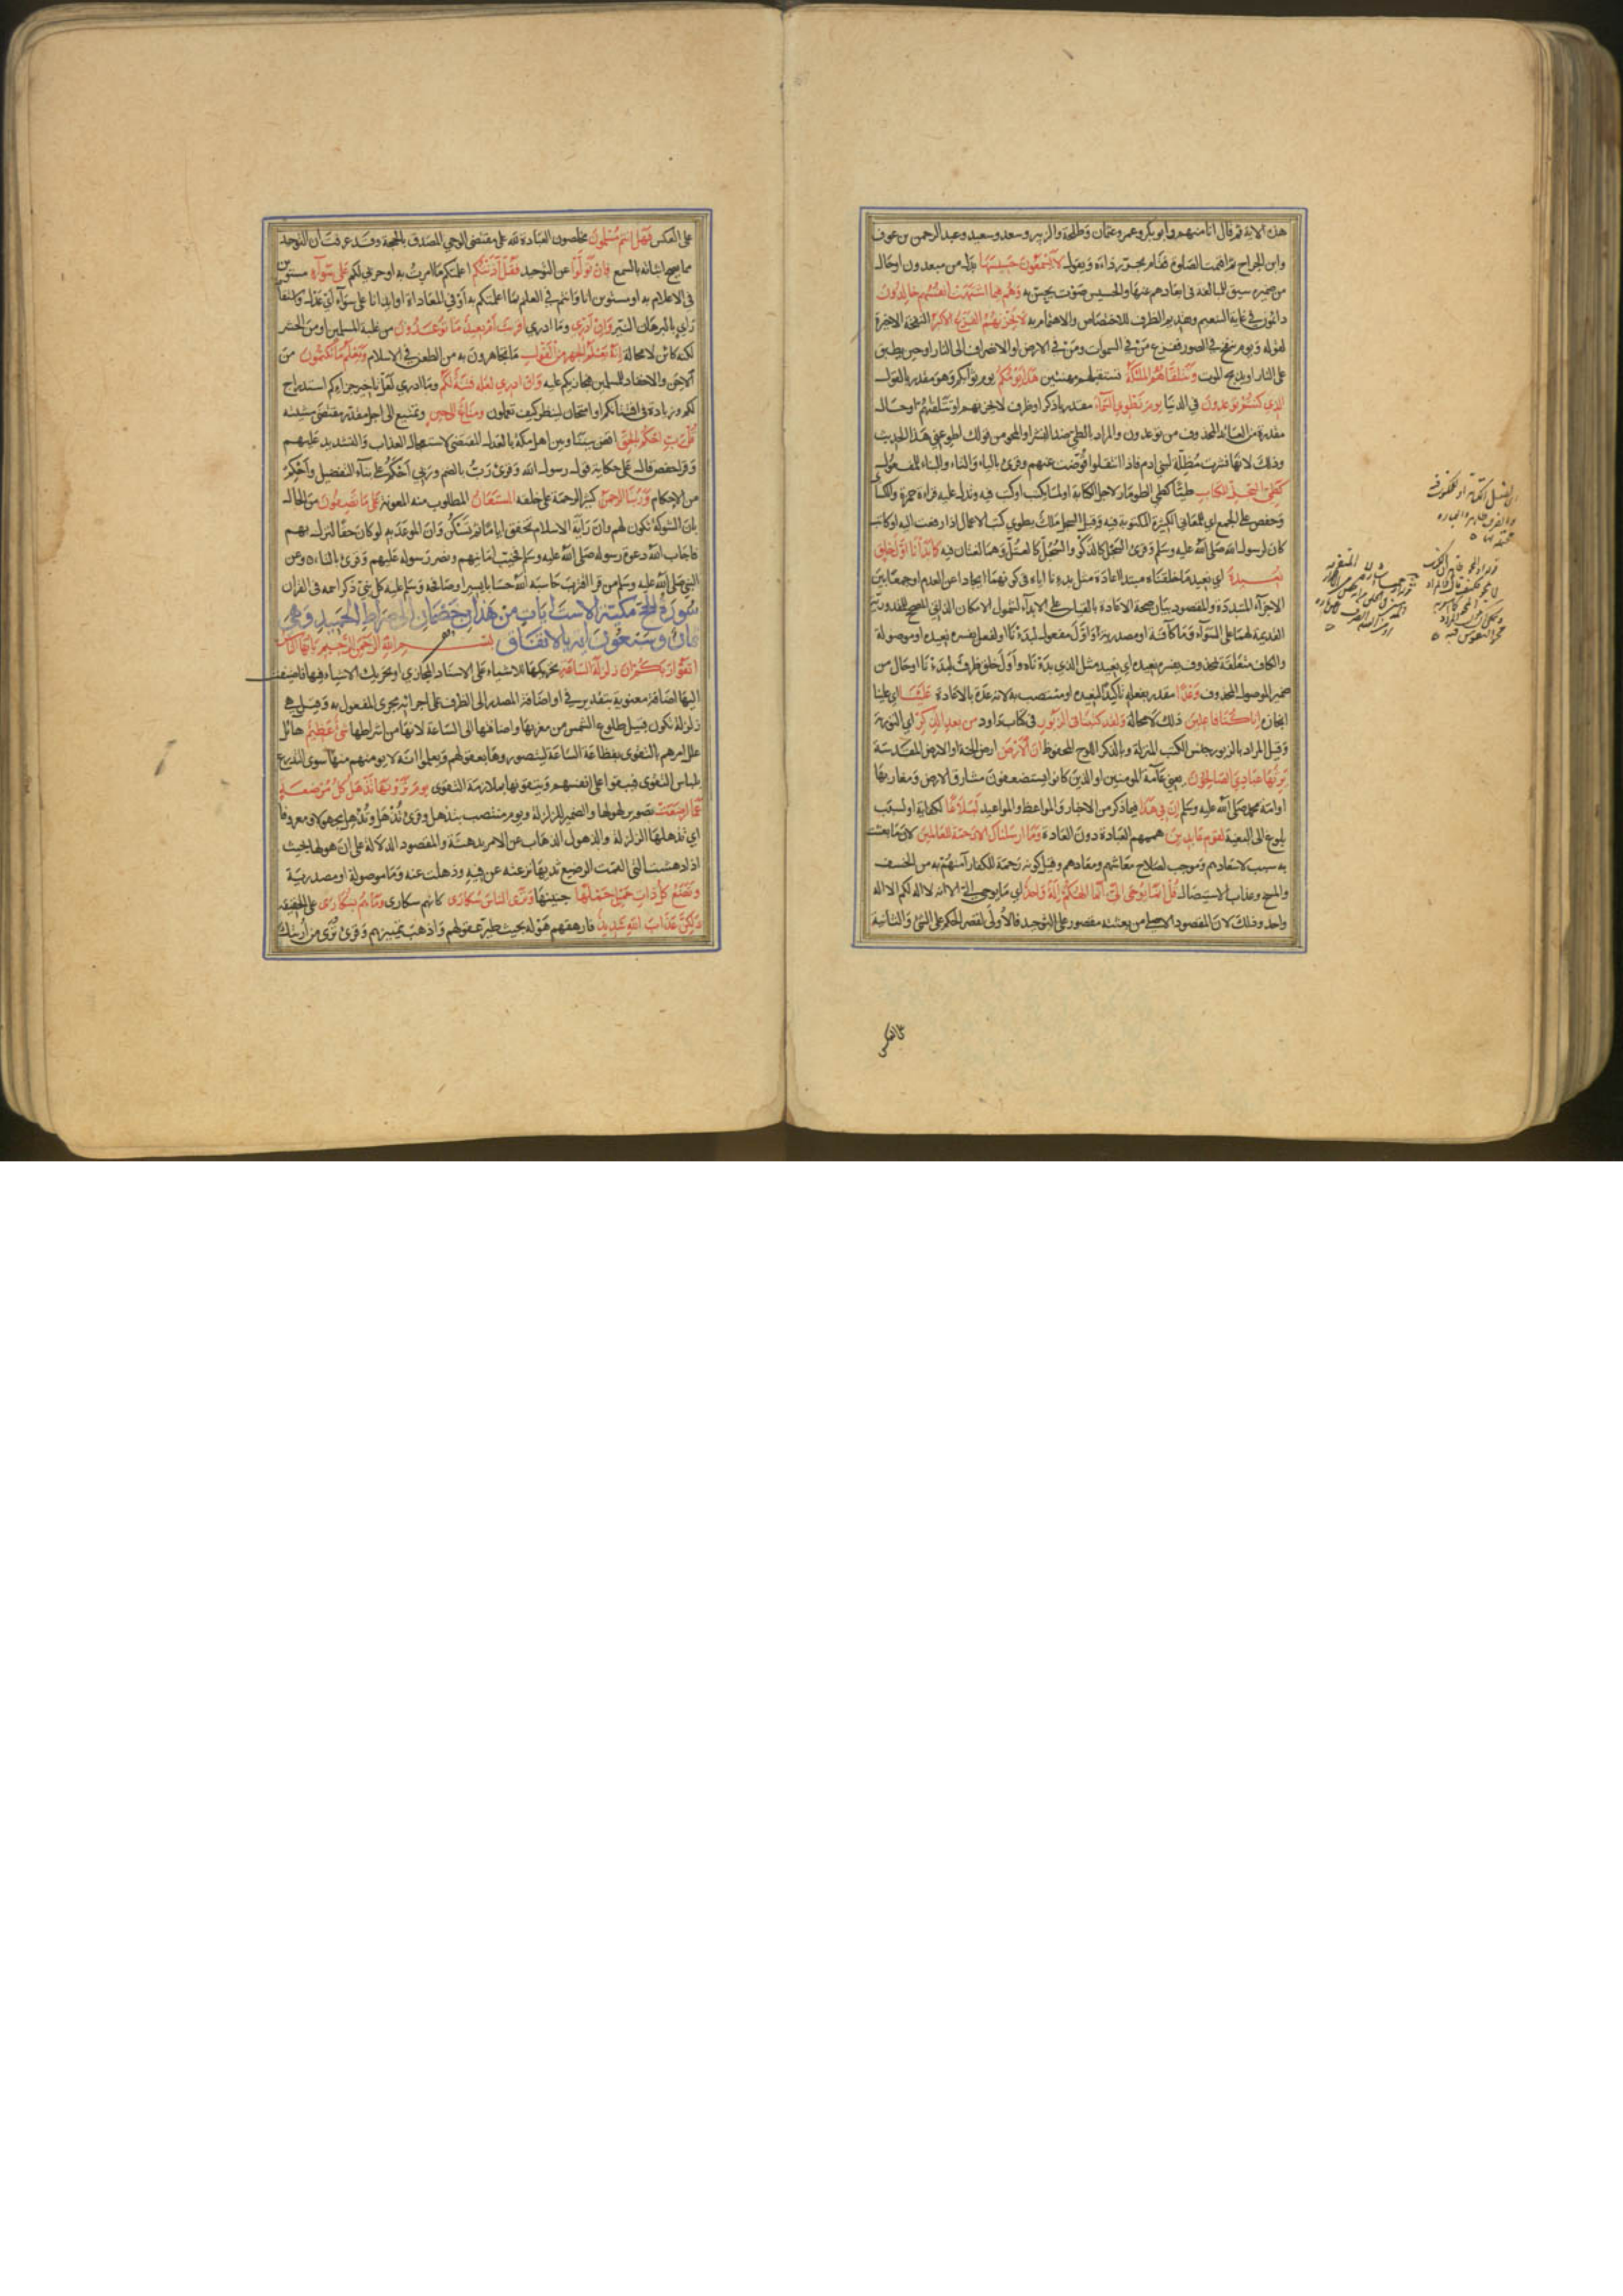 هذه الاية ثم قال انا منهم وأبو بكر وعمر وعثمان وطلحة والزبير وسعد وسعيد وعبد الرحمن بن عوف
وابن الجراح ثم اقيمت الصلوة فقام يجر رداءه ويقول لا يسمعون حسيسها بدل من مبعدون او حال
من ضميره سيق للمبالغة في ابعادهم عنها والحسيس صوت يحس به وهم فيما اشتهت انفسهم خالدون
دائمون في غاية التنعم وتقديم الظرف للاختصاص والاهتمام به لا يحزنهم الفزع الاكبر النفخة الاخيرة
لقوله ويوم ينفخ في الصور ففزع من في السموات ومن في الارض او الانصراف الى النار او حين يطبق
على النار او يذبح الموت وتتلقاهم الملئكة تستقبلهم مهنئين هذا يومكم يوم ثوابكم وهو مقدر بالقول
الذي كنتم توعدون في الدنيا يوم نطوي السماء مقدر باذكر او ظرف لا يحزنهم او تتلقاهم او حال
مقدرة من العائد المحذوف من توعدون والمراد بالطي ضد النشر او المحو من قولك اطو عني هذا الحديث
وذلك لانها نشرت مظلة لبني ادم فاذا انتقلوا قوضت عنهم وقرئ بالياء والتاء والبناء للمفعول
كطي السجل للكتاب طيا كطي الطومار لاجل الكتابة او لما يكتب او كتب فيه وتدل عليه قراءة حمزة والكسائي
وحفص على الجمع اي للمعاني الكثيرة المكتوبة فيه وقيل السجل ملك يطوي كتب الاعمال اذا رفعت اليه او كاتب
كان لرسول الله صلى الله عليه وسلم وقرئ السجل كالدلو والسجل كالعتل وهما لغتان فيه كما بدأنا اول خلق
نعيده اي نعيد ما خلقناه مبتدأ اعادة مثل بدءنا اياه في كونهما ايجادا عن العدم او جمعا بين
الاجزاء المتبددة والمقصود بيان صحة الاعادة بالقياس على الابداء لشمول الامكان الذاتي المصحح للمقدورية
القديمة لهما على السواء وما كافة او مصدرية واول مفعول لبدأنا او لفعل يفسره نعيده او موصولة
والكاف متعلقة بمحذوف يفسره نعيده اي نعيد مثل الذي بدأناه واول خلق ظرف لبدأنا او حال من
ضمير الموصول المحذوف وعدا مقدر بفعله تأكيدا لنعيده او منتصب به لانه عدة بالاعادة علينا اي علينا
انجازه انا كنا فاعلين ذلك لا محالة ولقد كتبنا في الزبور في كتاب داود من بعد الذكر اي التورية
وقيل المراد بالزبور جنس الكتب المنزلة وبالذكر اللوح المحفوظ ان الارض ارض الجنة او الارض المقدسة
يرثها عبادي الصالحون يعني عامة المومنين او الذين كانوا يستضعفون مشارق الارض ومغاربها
او امة محمد صلى الله عليه وسلم ان في هذا فيما ذكر من الاخبار والمواعظ والمواعيد لبلاغا لكفاية او لسبب
بلوغ الى البغية لقوم عابدين همهم العبادة دون العادة وما ارسلناك الا رحمة للعالمين لان ما بعثت
به سبب لاسعادهم وموجب لصلاح معاشهم ومعادهم وقيل كونه رحمة للكفار آمنهم به من الخسف
والمسخ وعذاب الاستيصال قل انما يوحى الي انما الهكم اله واحد اي ما يوحى الي الا انه لا اله لكم الا اله
واحد وذلك لان المقصود الاصلي من بعثته مقصور على التوحيد فالاولى لقصر الحكم على الشئ والثانية
على العكس
على العكس فهل انتم مسلمون مخلصون العبادة لله على مقتضى الوحي المصدق بالحجة وقد عرفت ان التوحيد
مما يصح اثباته بالسمع فان تولوا عن التوحيد فقل آذنتكم اعلمتكم ما امرت به او حربي لكم على سواء مستوين
في الاعلام به او مستوين انا وانتم في العلم بما اعلمتكم به او في المعاداة او ايذانا على سواء
راي بالبرهان النير وان ادري وما ادري اقريب أم بعيد ما توعدون من غلبة المسلمين او من الحشر
لكنه كائن لا محالة انه يعلم الجهر من القول ما تجاهرون به من الطعن في الاسلام ويعلم ما تكتمون من
الاحن والاحقاد للمسلمين فيجازيكم عليه وان ادري لعله فتنة لكم وما ادري لعل تاخير جزاءكم استدراج
لكم وزيادة في افتتانكم او امتحان لينظر كيف تعملون ومتاع الى حين وتمتيع الى اجل مقدر يقتضي مشيئته
قل رب احكم بالحق اقض بيننا وبين اهل مكة بالعدل المقتضي لاستعجال العذاب والتشديد عليهم
وقرا حفص قال على حكاية قول رسول الله وقرئ رب بالضم وربي احكم على بناء التفضيل واحكم
من الاحكام وربنا الرحمن كثير الرحمة على خلقه المستعان المطلوب منه المعونة على ما تصفون من الحال
بان الشوكة تكون لهم وان راية الاسلام تخفق اياما ثم تسكن وان الموعد به لو كان حقا لنزل بهم
فاجاب الله دعوة رسوله صلى الله عليه وسلم فخيب امانيهم ونصر رسوله عليهم وقرئ بالياء وعن
النبي صلى الله عليه وسلم من قرا اقترب حاسبه الله حسابا يسيرا وصافحه وسلم عليه كل نبي ذكر اسمه في القران
سورة الحج مكية الا ست ايات من هذان خصمان الى صراط الحميد وهي
ثمان وسبعون آية بالاتفاق بسم الله الرحمن الرحيم يا ايها الناس
اتقوا ربكم ان زلزلة الساعة تحريكها للاشياء على الاسناد المجازي او تحريك الاشياء فيها فاضيفت
اليها اضافة معنوية بتقدير في او اضافة المصدر الى الظرف على اجرائه مجرى المفعول به وقيل هي
زلزلة تكون قبيل طلوع الشمس من مغربها واضافتها الى الساعة لانها من اشراطها شئ عظيم هائل
علل امرهم بالتقوى بفظاعة الساعة ليتصوروها بعقولهم ويعلموا انه لا يومنهم منها سوى التدرع
بلباس التقوى فيبقوا على انفسهم ويتقوها بملازمة التقوى يوم ترونها تذهل كل مرضعة
عما ارضعت تصوير لهولها والضمير للزلزلة ويوم منتصب بتذهل وقرئ تذهل وتذهل مجهولا ومعروفا
اي تذهلها الزلزلة والذهول الذهاب عن الامر بدهشة والمقصود الدلالة على ان هولها بحيث
اذا دهشت التي القمت الرضيع ثديها نزعته عن فيه وذهلت عنه وما موصولة او مصدرية
وتضع كل ذات حمل حملها جنينها وترى الناس سكارى كانهم سكارى وما هم بسكارى على الحقيقة
ولكن عذاب الله شديد فارهقهم هوله بحيث طير عقولهم واذهب تمييزهم وقرئ ترى من اريتك